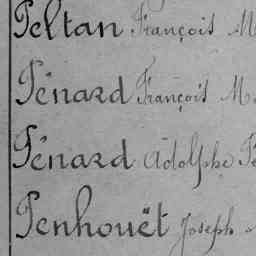 Peltan François M
Pénard François M
Pénard Adolphe
Penhouët Joseph